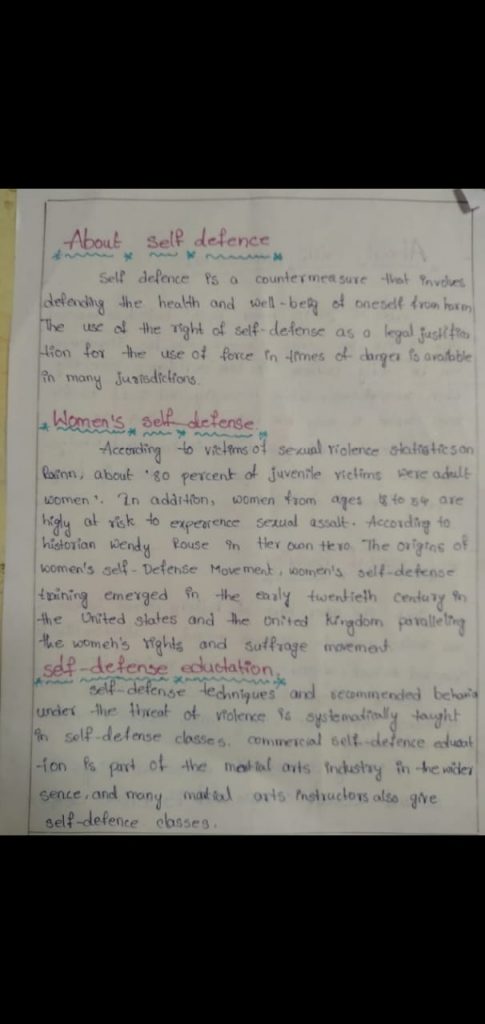 About self defence
Self defence is a countermeasure that involves
defending the health and well-beig of oneself from harm
The use of the right of self-defense as a legal justifica
-tion for the use of force in times of danger is available
in many jurisdictions.
Women's self-defense.
According to victims of sexual violence statistics on
Rainn, about "80 percent of juvenile victims were adult
women". In addition, women from ages 18 to 54 are
higly at risk to experence sexual assalt. According to
historian Wendy Rouse in Her own Hero The origins of
women's self-Defense Movement, women's self-defense
training emerged in the early twentieth century in
the United states and the United kingdom paralleling
the women's rights and suffrage movement
self-defense eductation.
self-defense techniques and recommended behavio
under the threat of violence is systematically taught
in self-defense classes. commercial self-defence educat
-ion is part of the martial arts industry in the wider
sence, and many martial arts instructors also give
self-defence classes.